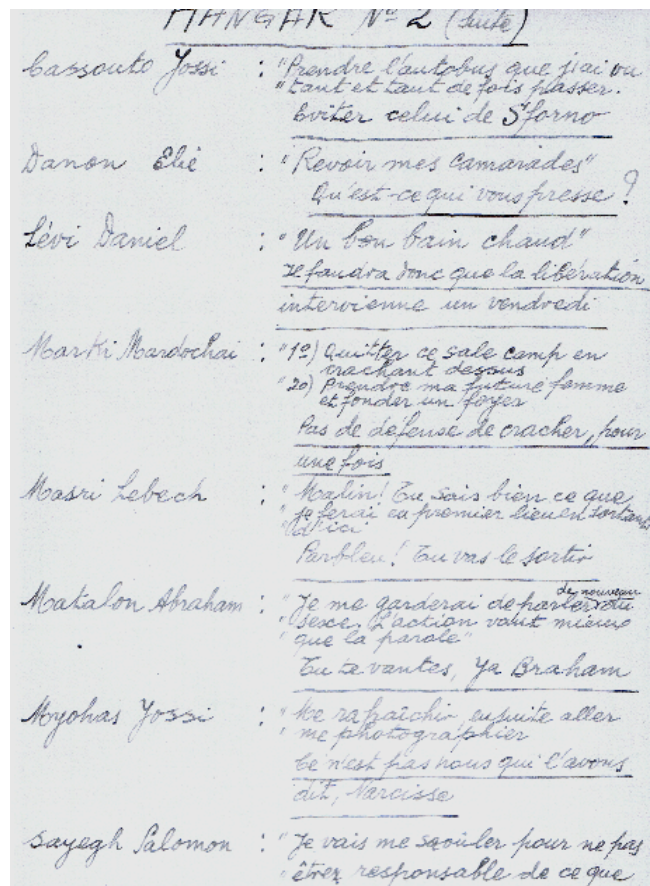 HANGAR Nº 2 (suite)
Cassouto Yossi : "Prendre l'autobus que j'ai vu
"tant et tant de fois passer.
Eviter celui de Sforno
Danon Elie : "Revoir mes camarades"
Qu'est-ce qui vous presse ?
Lévi Daniel : "Un bon bain chaud"
Il faudra donc que la libération
intervienne un vendredi
Marki Mardochai : "1º) Quitter ce sale camp en
crachant dessus
"2o) Prendre ma future femme
et fonder un foyer
Pas de défense de cracher, pour
une fois
Masri Lebech : "Malin! Tu sais bien ce que
"je ferai en premier lieu en sortant
"d'ici"
Parbleu! Tu vas le sortir
Matalon Abraham : "Je me garderai de parler de nouveau du
"sexe. L'action vaut mieux
"que la parole"
Tu te vantes, Ya Braham
Myohas Yossi : "Me rafraîchir, ensuite aller
"me photographier
Ce n'est pas nous qui l'avons
dit, Narcisse
Sayegh Salomon : "Je vais me saoûler pour ne pas
"être responsable de ce que